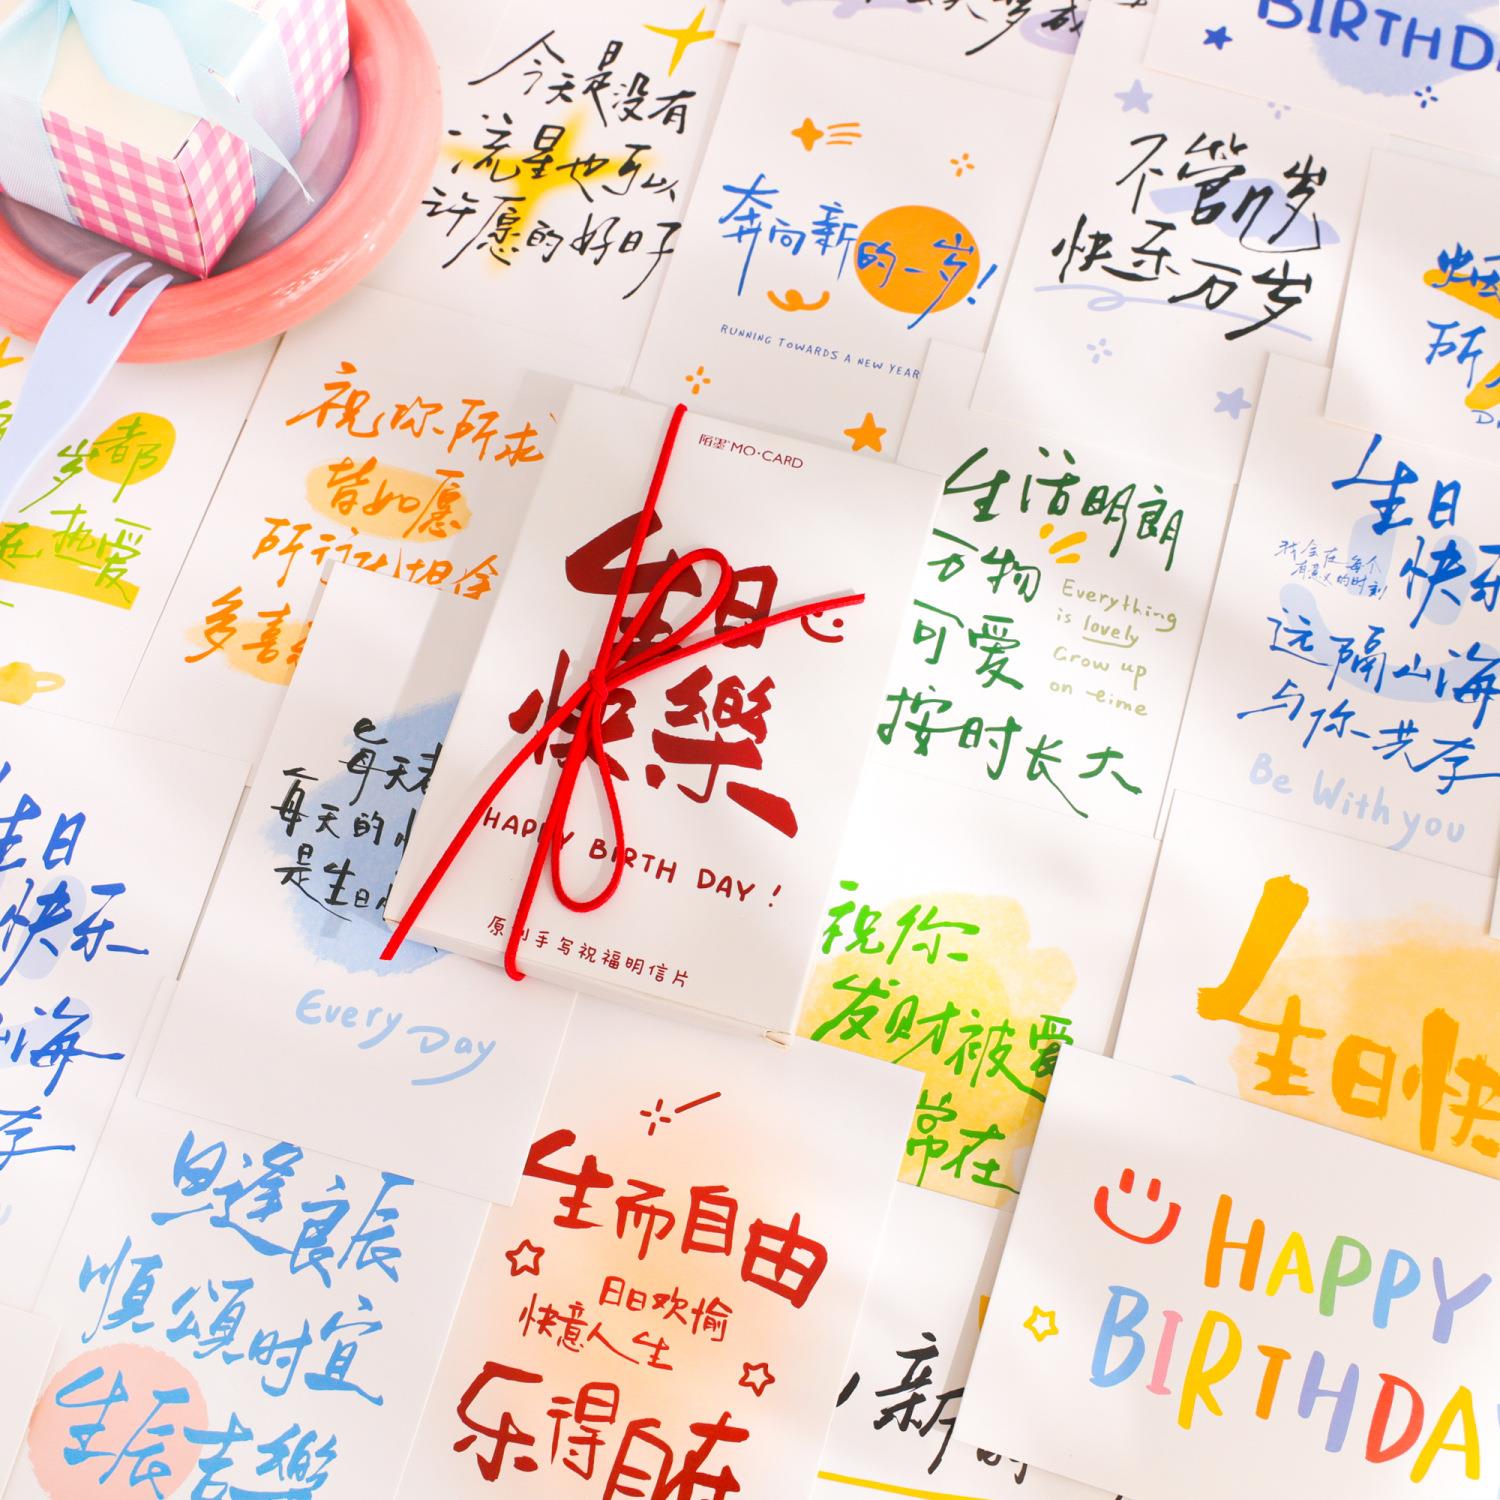 今天是没有
流星也可以
许愿的好日子
奔向新的一岁!
RUNNING TOWARDS A NEW YEAR
不管几岁
快乐万岁
BIRTHD
祝你所求
皆如愿
所行
多喜
岁都
在热爱
陌墨 MO·CARD
生日
快樂
HAPPY BIRTH DAY!
原创手写祝福明信片
生活明朗
万物
可爱
Everything
is lovely
Grow up
on time
按时长大
生日
快乐
我会在每个
有意义的时刻
远隔山海
与你共存
Be With you
每天
每天的
是生日
Every Day
生日
快乐
山海
存
祝你
发财被爱
常在
生日快
旦逢良辰
順頌时宜
生辰吉樂
生而自由
日日欢愉
快意人生
乐得自在
新的
HAPPY
BIRTHDA